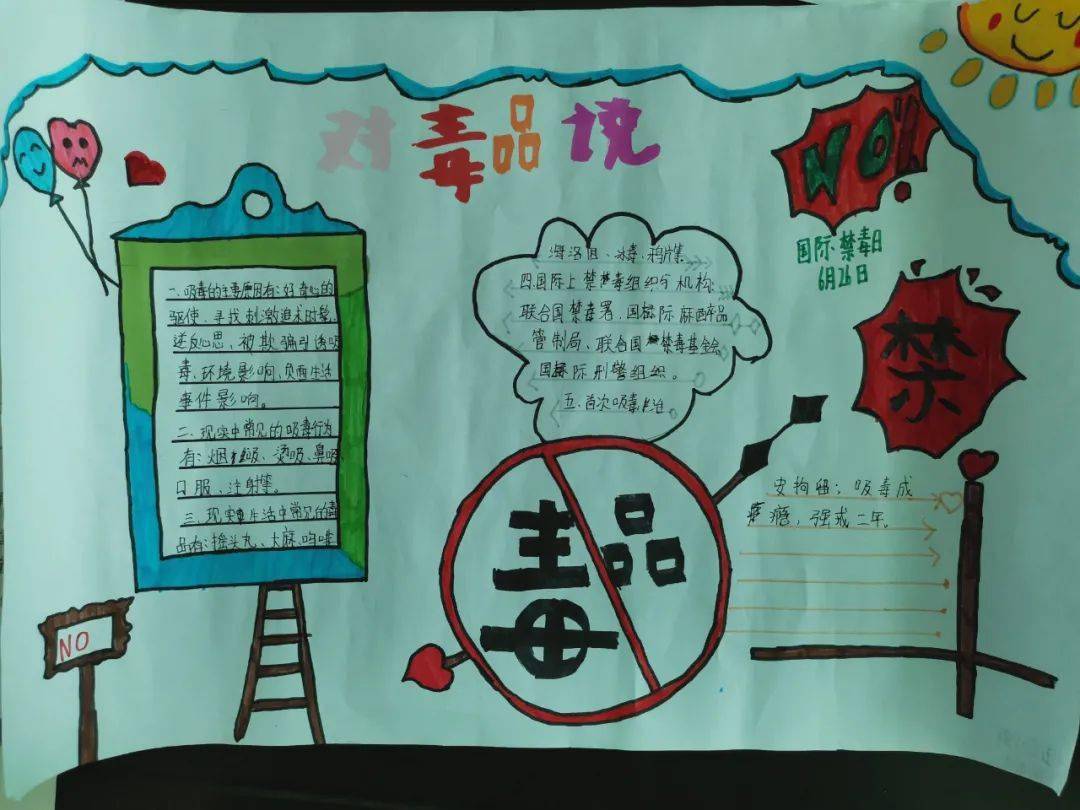 对毒品说
NO!
国际禁毒日
6月26日
禁
一、吸毒的主要原因有:好奇心的
驱使、寻找刺激追求时髦、
逆反心思、被欺骗引诱吸
毒、环境影响、负面生活
事件影响。
二、现实中常见的吸毒行为
有:烟吸、烫吸、鼻吸、
口服、注射等。
三、现实生活中常见的毒
品有:摇头丸、大麻、吗啡
海洛因、冰毒、鸦片等
四.国际上禁毒组织与机构:
联合国禁毒署、国际麻醉品
管制局、联合国禁毒基金会
国际刑警组织。
五、首次吸毒
安拘留;吸毒成
瘾,强戒二年
毒品
NO